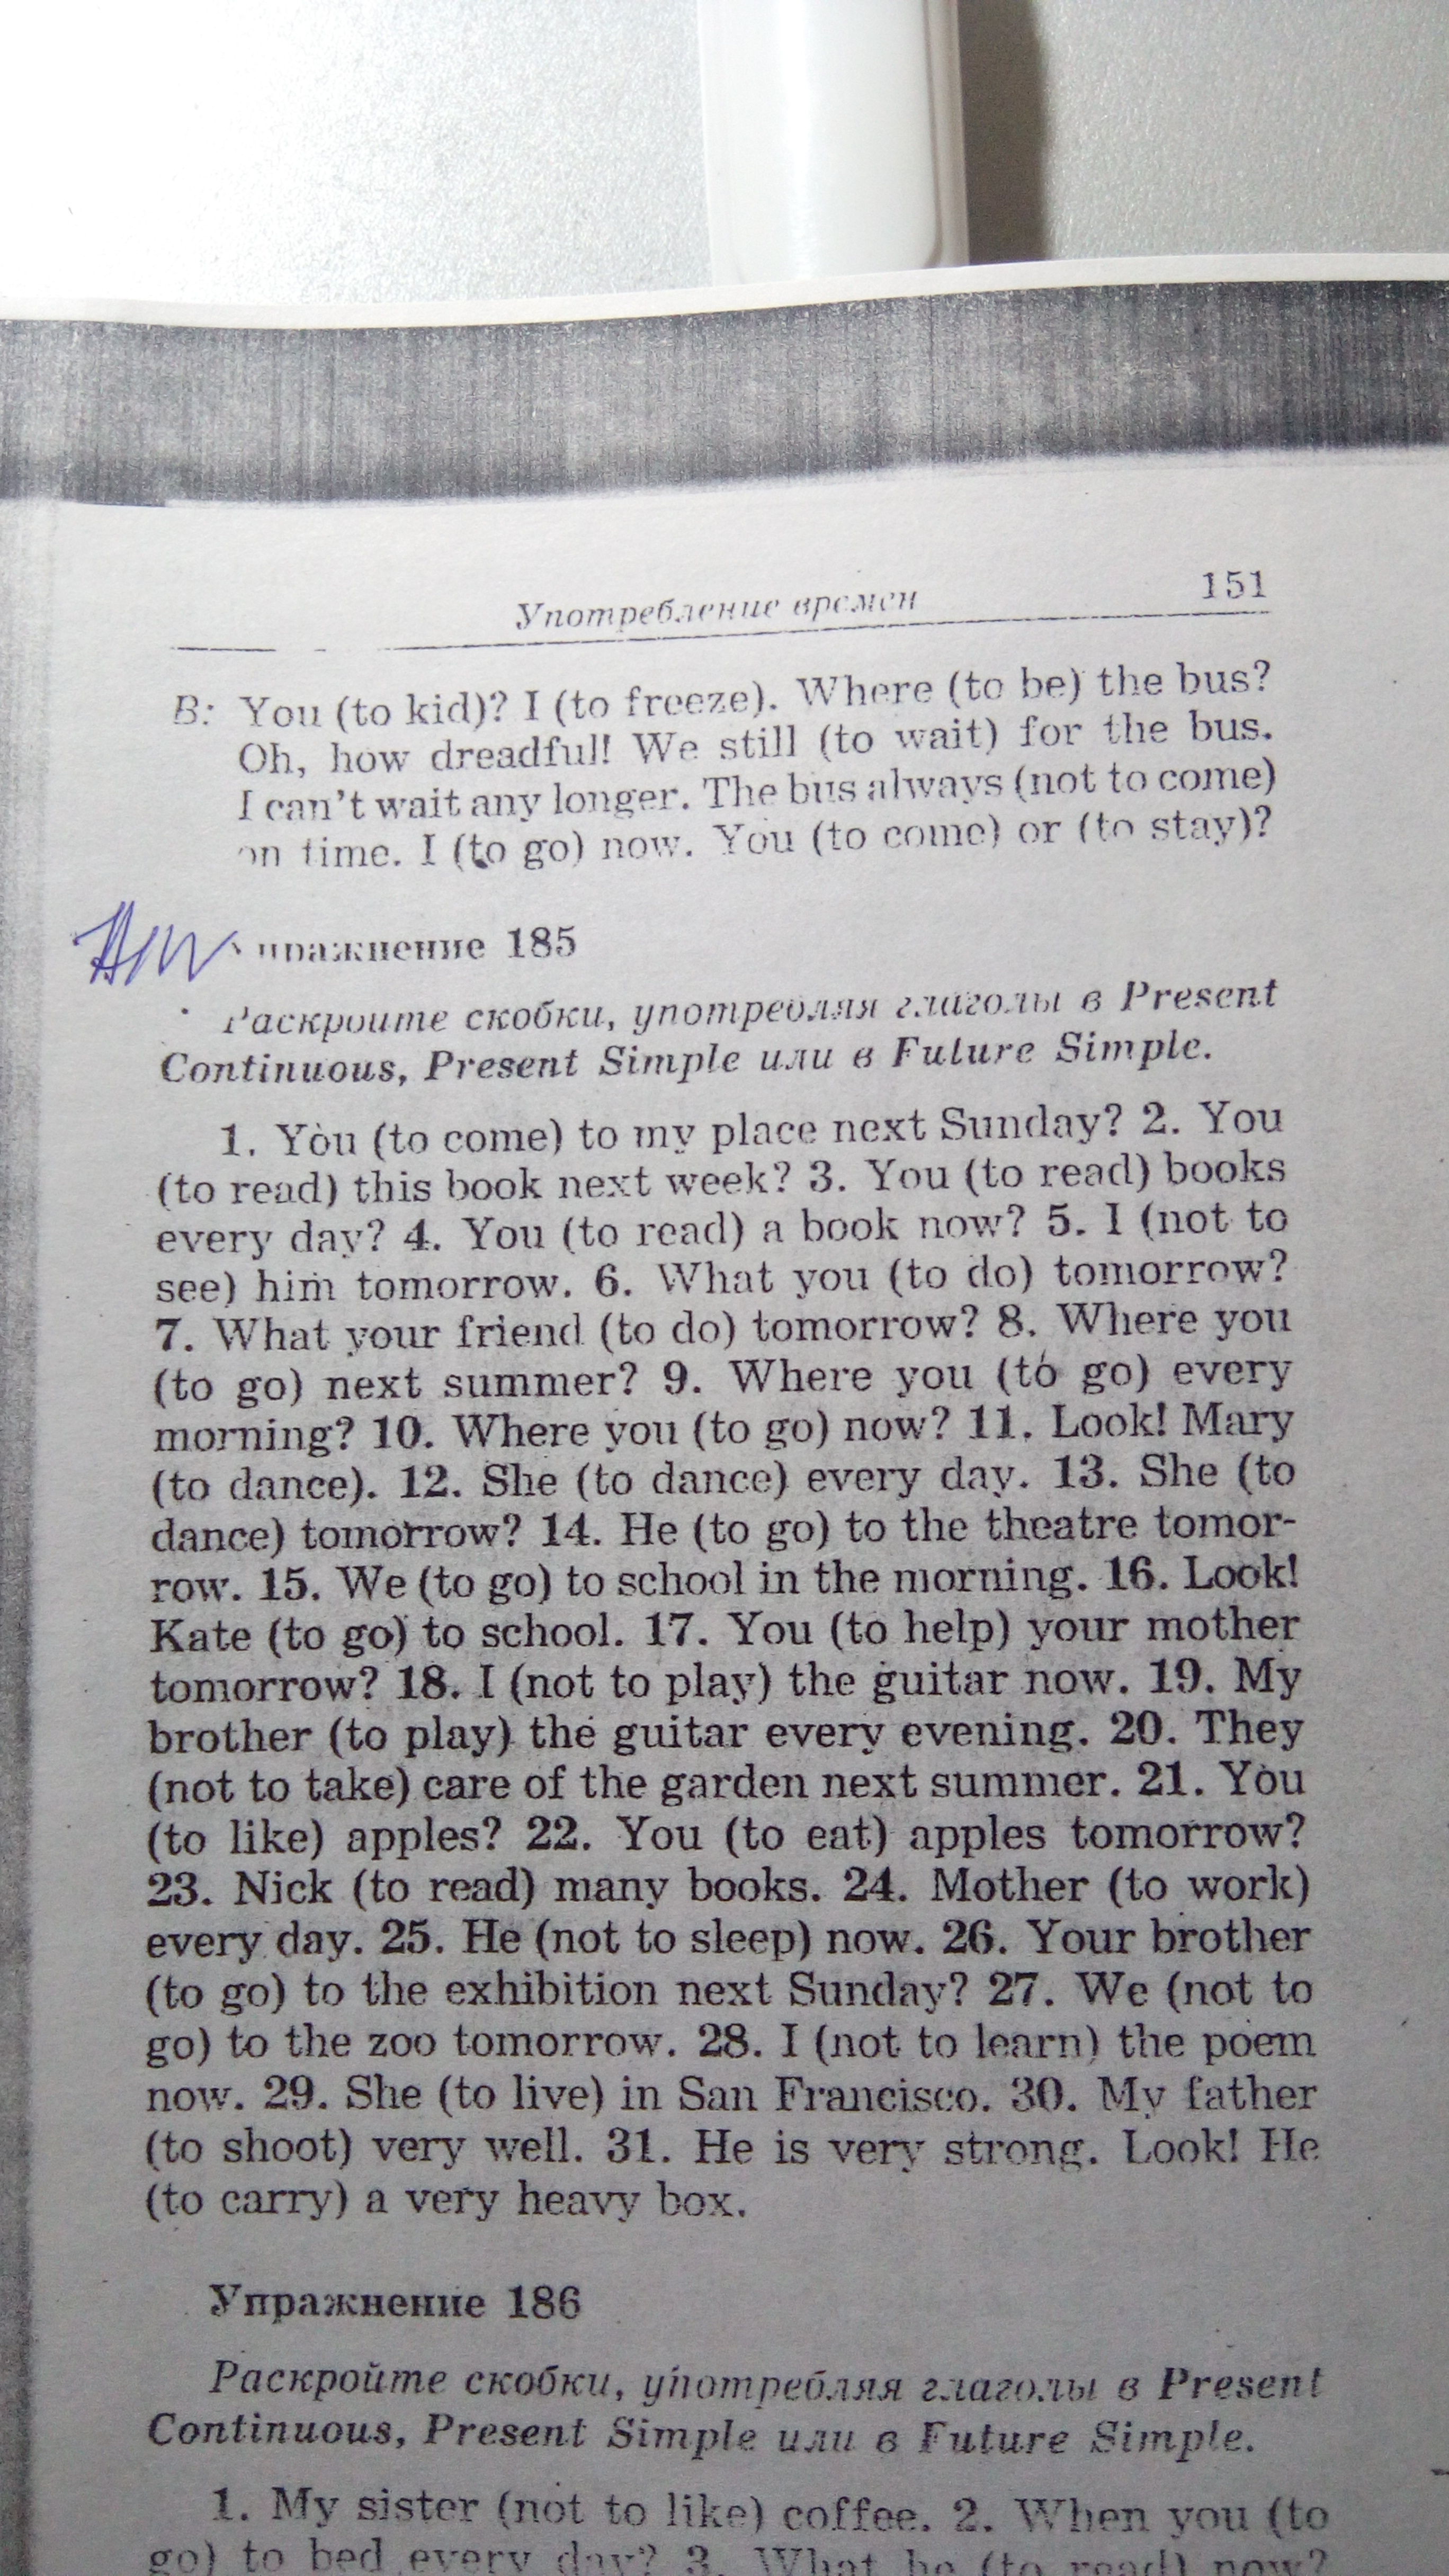 Употребление времен 151
B: You (to kid)? I (to freeze). Where (to be) the bus?
Oh, how dreadful! We still (to wait) for the bus.
I can't wait any longer. The bus always (not to come)
on time. I (to go) now. You (to come) or (to stay)?
Упражнение 185
Раскройте скобки, употребляя глаголы в Present
Continuous, Present Simple или в Future Simple.
1. You (to come) to my place next Sunday? 2. You
(to read) this book next week? 3. You (to read) books
every day? 4. You (to read) a book now? 5. I (not to
see) him tomorrow. 6. What you (to do) tomorrow?
7. What your friend (to do) tomorrow? 8. Where you
(to go) next summer? 9. Where you (to go) every
morning? 10. Where you (to go) now? 11. Look! Mary
(to dance). 12. She (to dance) every day. 13. She (to
dance) tomorrow? 14. He (to go) to the theatre tomor-
row. 15. We (to go) to school in the morning. 16. Look!
Kate (to go) to school. 17. You (to help) your mother
tomorrow? 18. I (not to play) the guitar now. 19. My
brother (to play) the guitar every evening. 20. They
(not to take) care of the garden next summer. 21. You
(to like) apples? 22. You (to eat) apples tomorrow?
23. Nick (to read) many books. 24. Mother (to work)
every day. 25. He (not to sleep) now. 26. Your brother
(to go) to the exhibition next Sunday? 27. We (not to
go) to the zoo tomorrow. 28. I (not to learn) the poem
now. 29. She (to live) in San Francisco. 30. My father
(to shoot) very well. 31. He is very strong. Look! He
(to carry) a very heavy box.
Упражнение 186
Раскройте скобки, употребляя глаголы в Present
Continuous, Present Simple или в Future Simple.
1. My sister (not to like) coffee. 2. When you (to
go) to bed every day? 3. What he (to read) now?